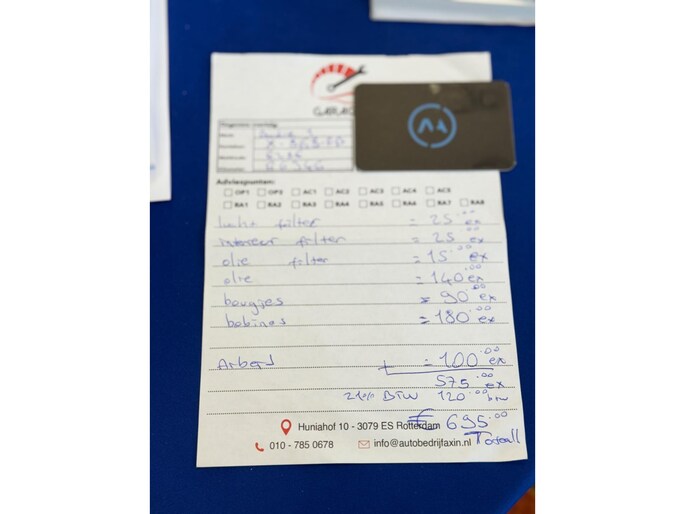 Adviespunten:
OP1 OP2 AC1 AC2 AC3 AC4 AC5
RA1 RA2 RA3 RA4 RA5 RA6 RA7 RA8
lucht filter = 25.00 ex
interieur filter = 25.00 ex
olie filter = 15.00 ex
olie = 140.00 ex
bougies = 90.00 ex
bobines = 180.00 ex
Arbeid = 100.00 ex
575.00 ex
21% BTW 120.00 btw
€ 695.00
Huniahof 10 - 3079 ES Rotterdam
Totaall
010 - 785 0678 info@autobedrijfaxin.nl